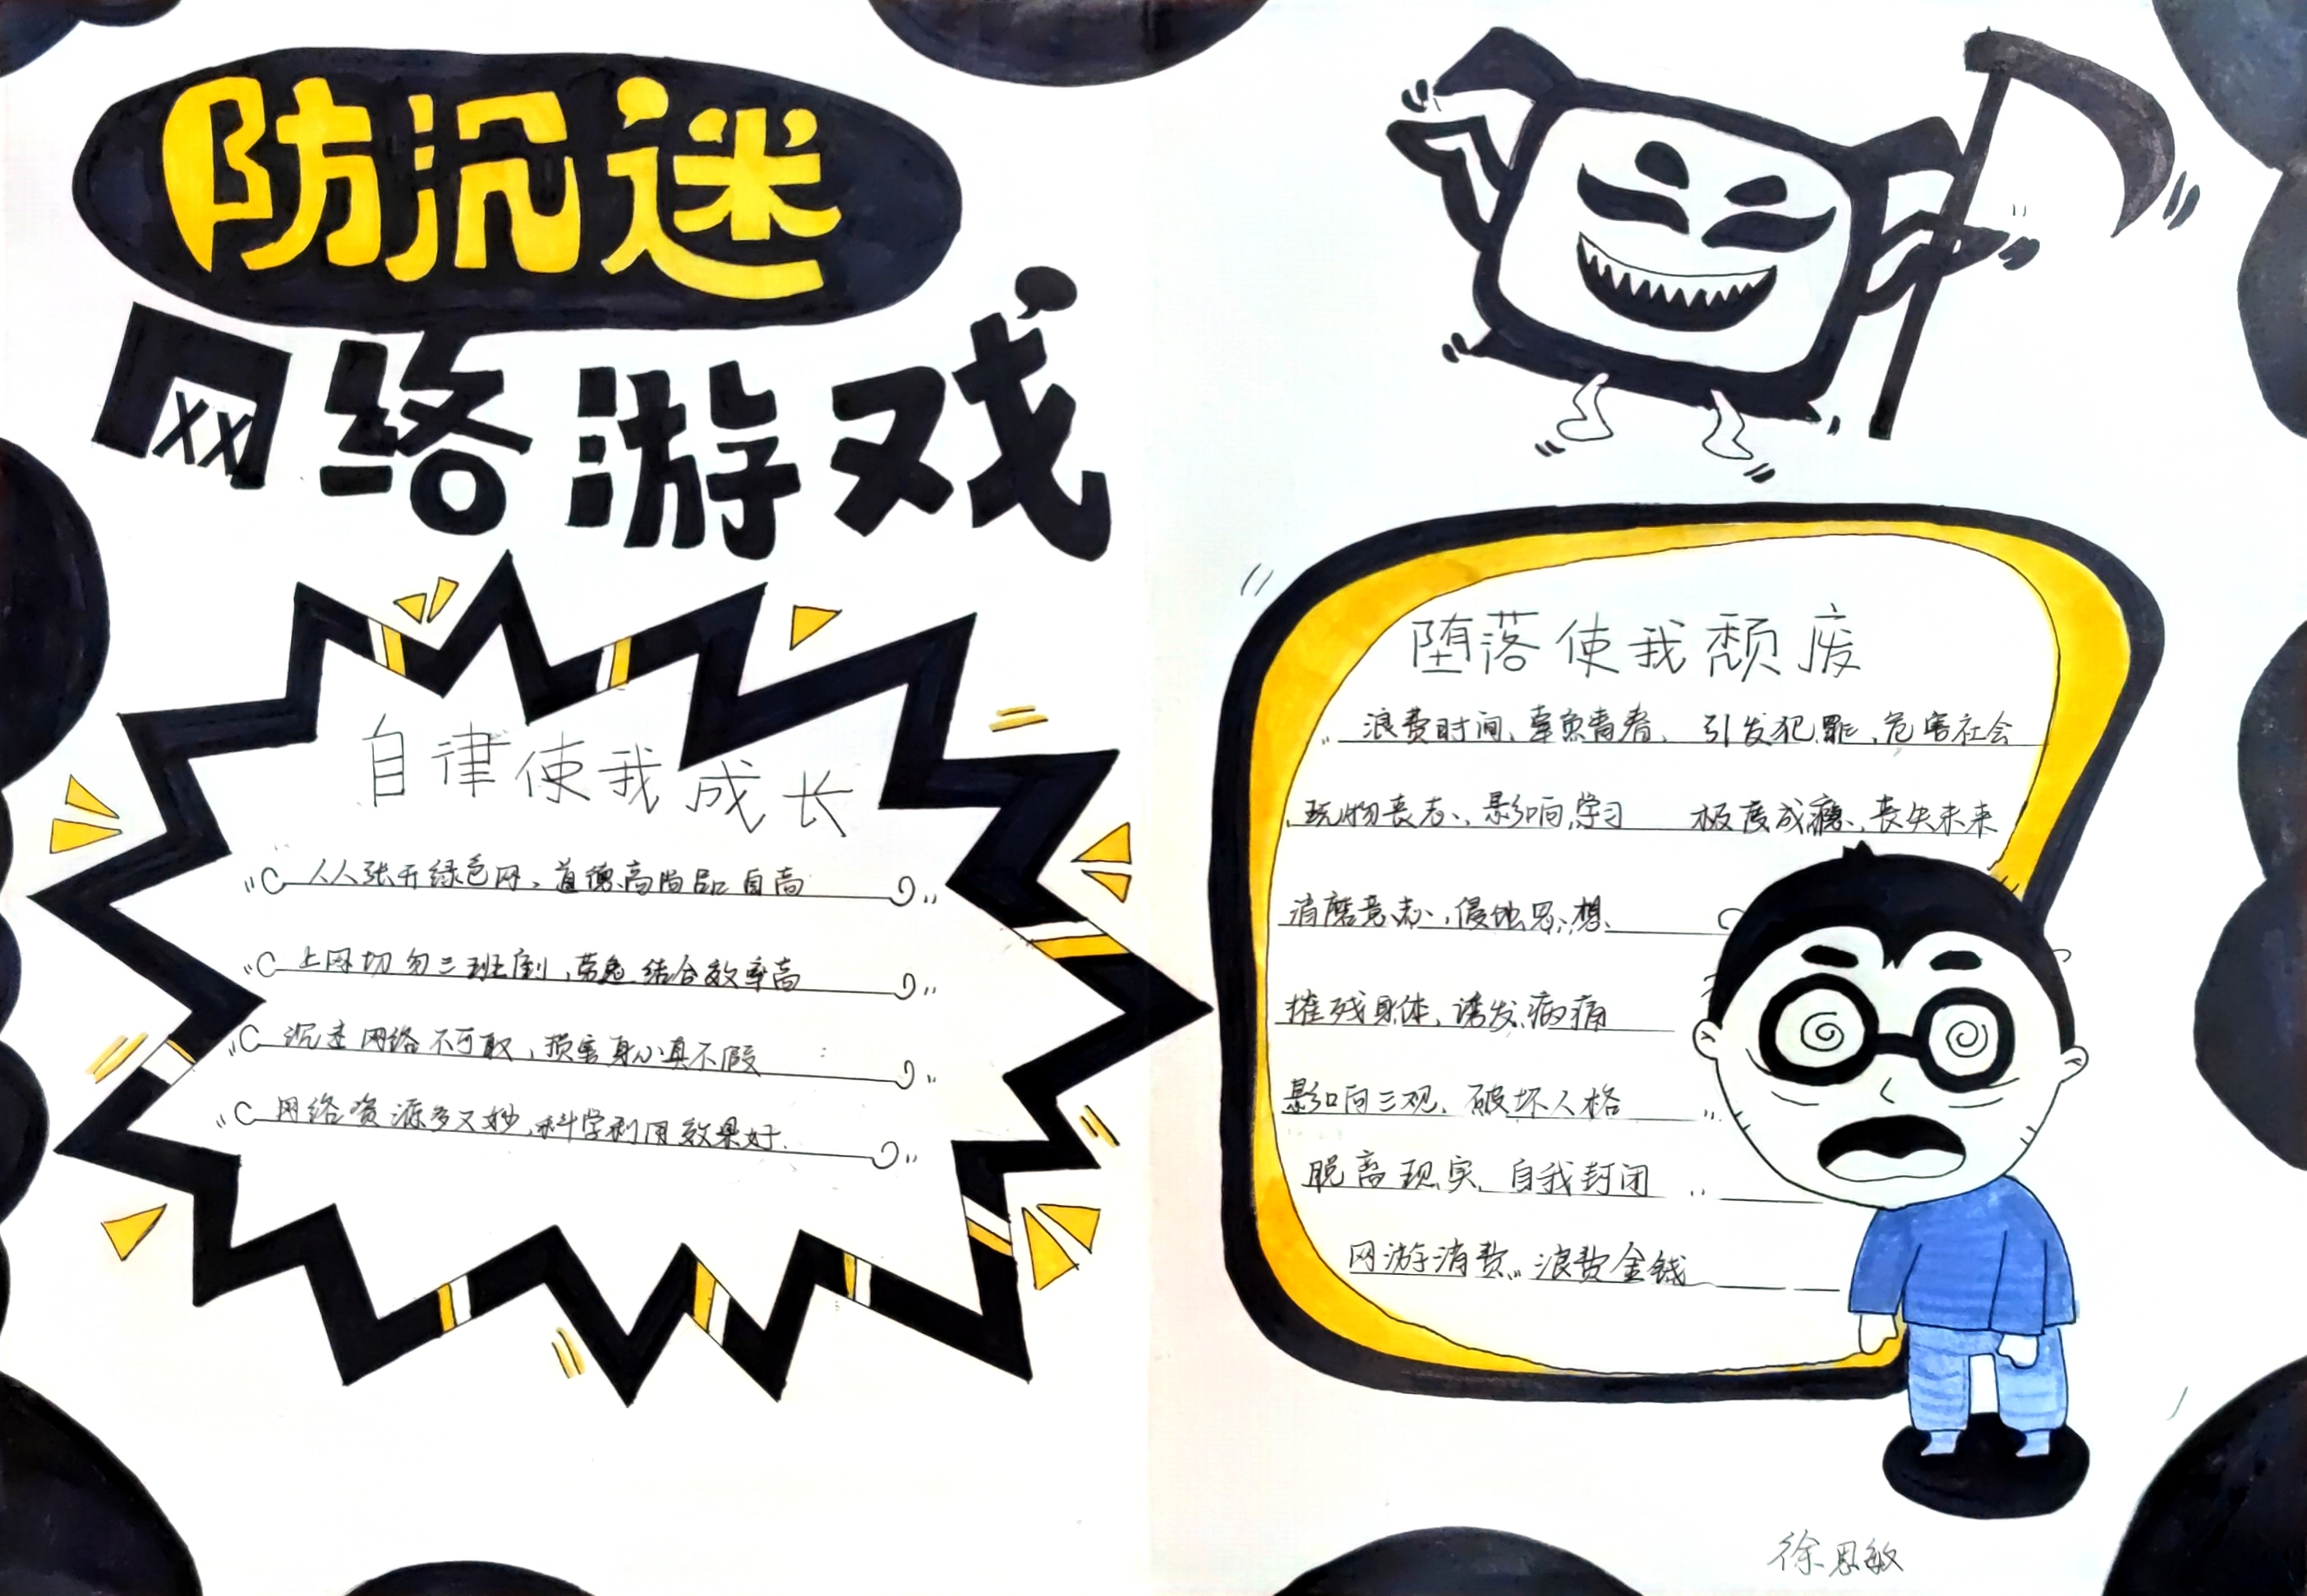 防沉迷
网络游戏
自律使我成长
人人张开绿色网、道德高尚品自高
上网切勿三班倒,劳逸结合效率高
沉迷网络不可取,损害身心真不假
网络资源多又妙,科学利用效果好.
堕落使我颓废
浪费时间、辜负青春、引发犯罪、危害社会
玩物丧志、影响学习 极度成瘾、丧失未来
消磨意志、侵蚀思想、
摧残身体、诱发病痛
影响三观、破坏人格
脱离现实、自我封闭
网游消费,浪费金钱
徐恩敏